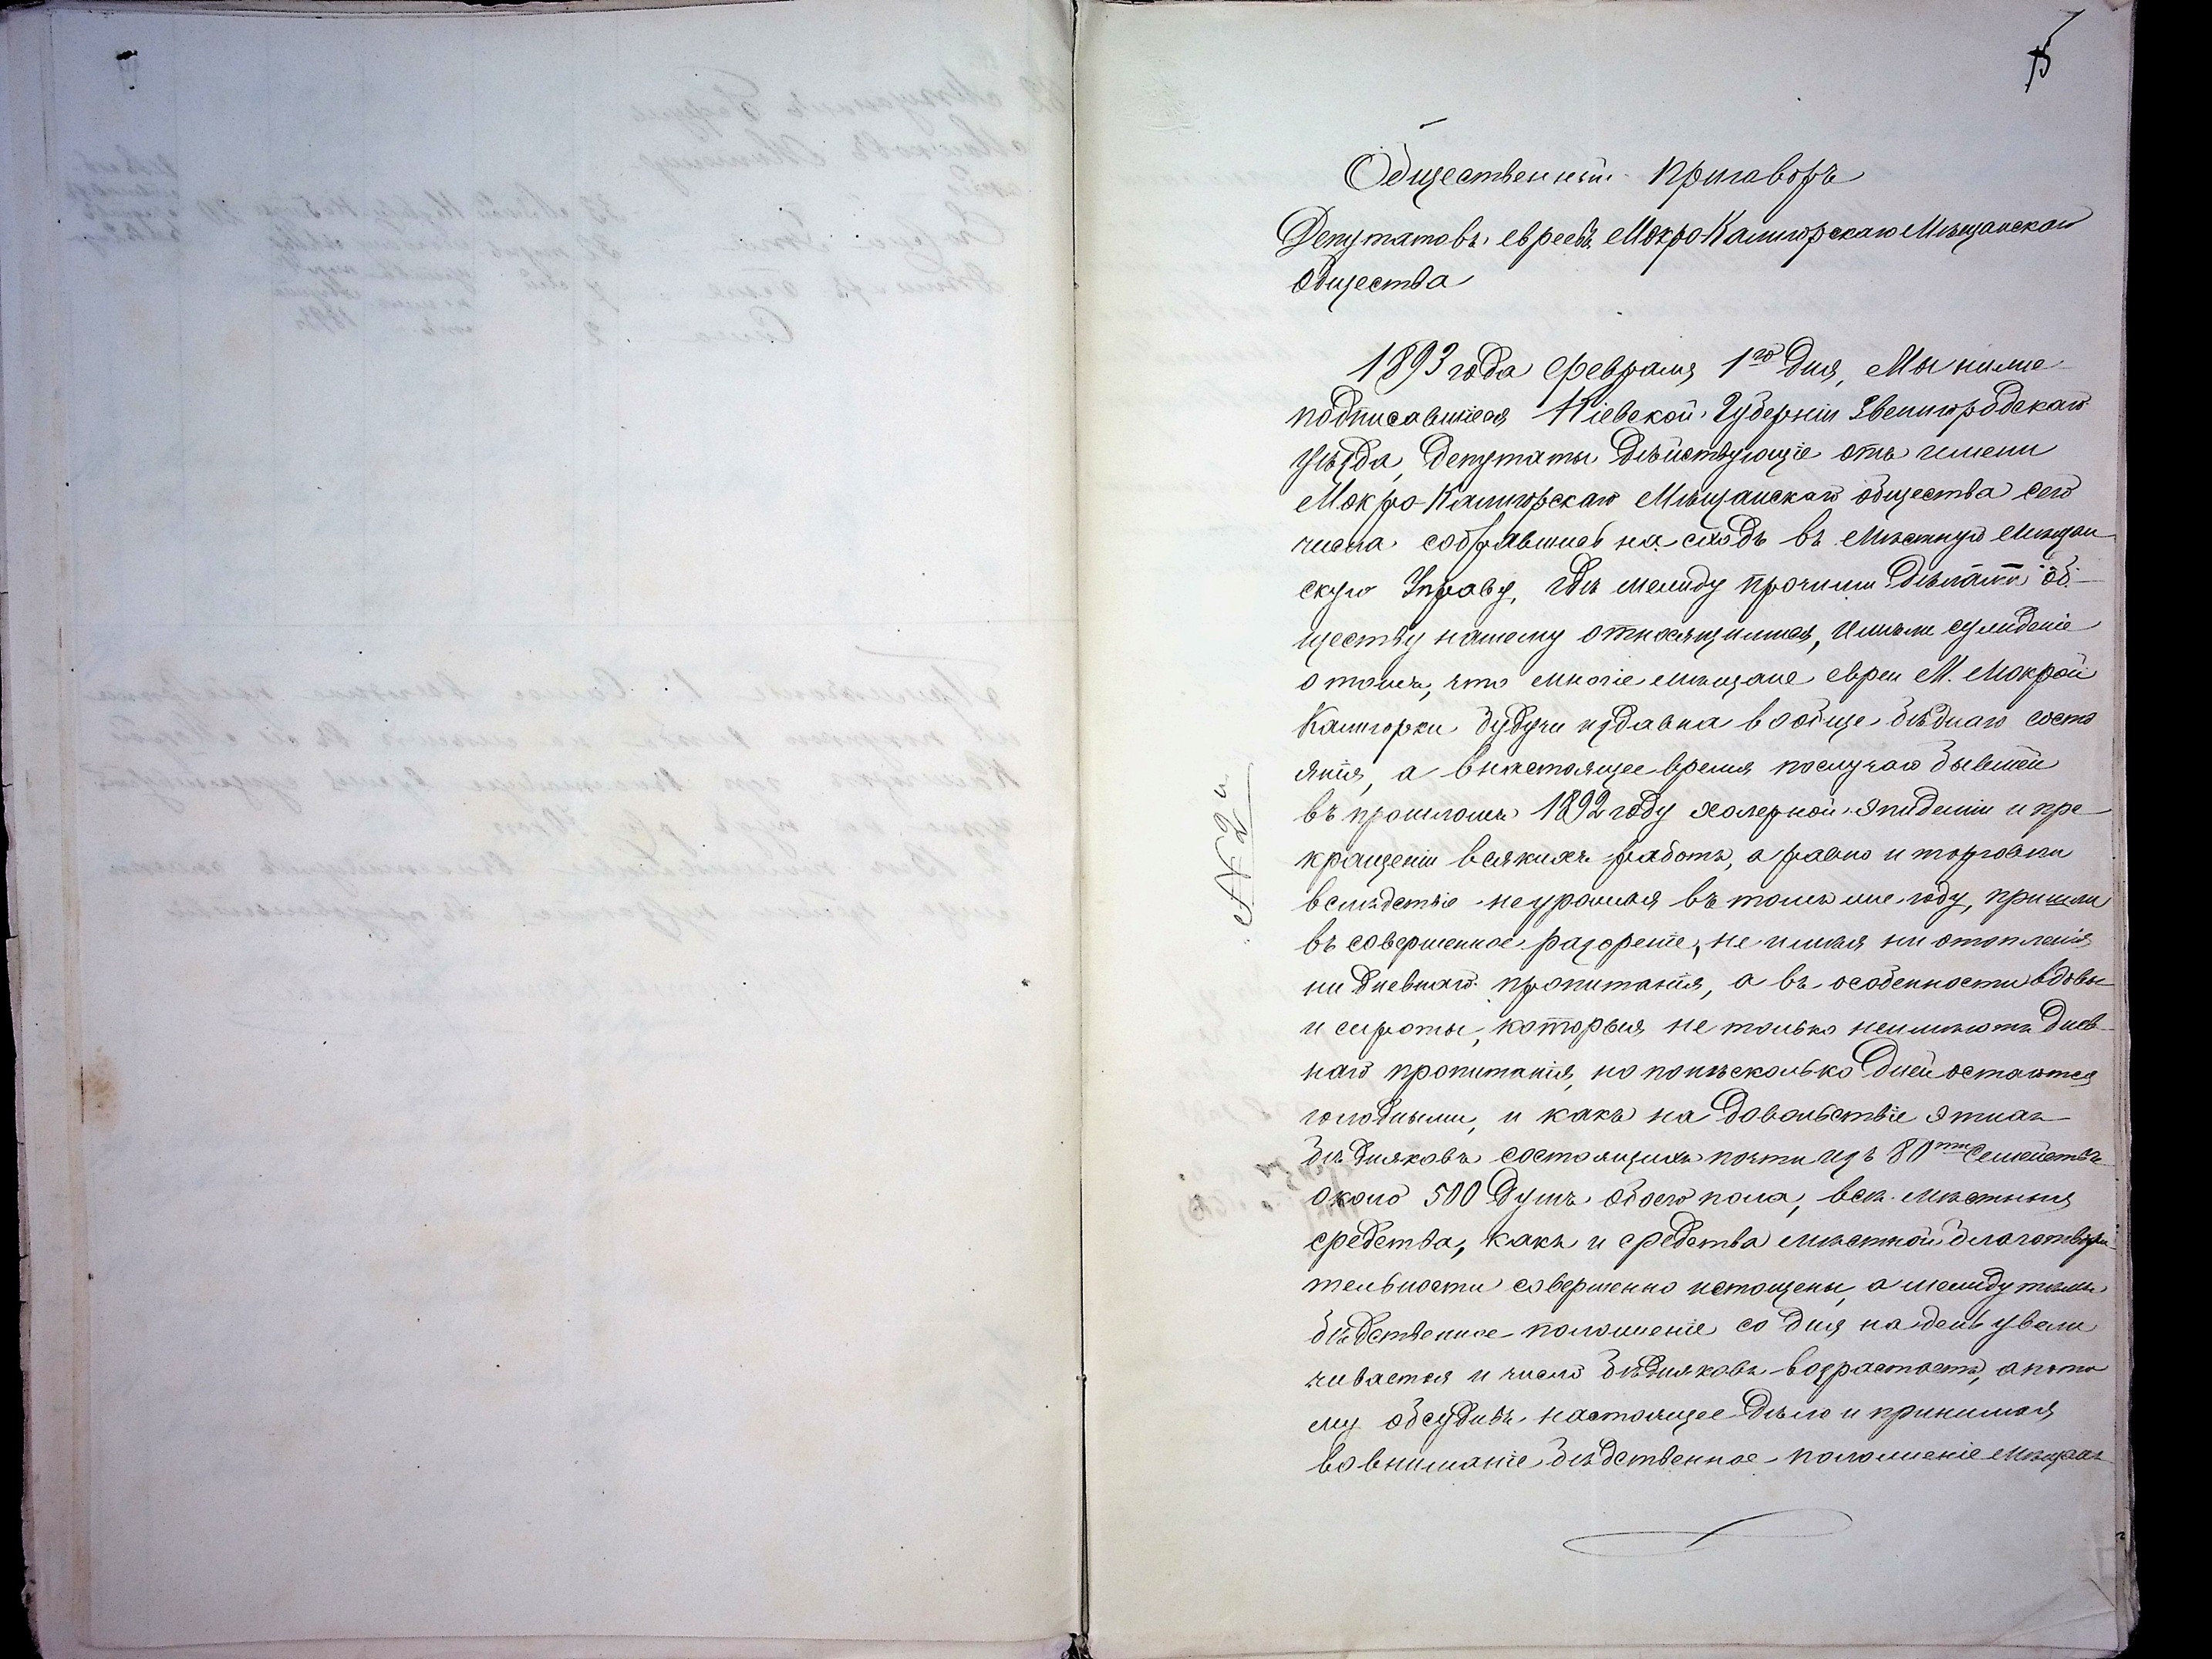 Общественный приговоръ
Депутатовъ евреевъ Мокро-Калигорскаго Мѣщанскаго
общества
1893 года февраля 1го дня, Мы ниже
подписавшіеся Кіевской Губерніи Звенигородскаго
уѣзда, Депутаты дѣйствующіе отъ имени
Мокро-Калигорскаго Мѣщанскаго общества сего
числа собравшись на сходъ въ мѣстную мѣщан
скую Управу, гдѣ между прочими дѣлами об-
ществу нашему относящимися, имѣли сужденіе
о томъ, что многіе мѣщане евреи М. Мокрой
Калигорки будучи издавна вообще бѣднаго состо
янія, а внастоящее время послучаю бывшей
въ прошломъ 1892 году холерной эпидеміи и пре-
кращеніи всякихъ работъ, а равно и торговли
вслѣдствіе неурожая въ томъ же году, пришли
въ совершенное разореніе, не имѣя ни отопленія
ни дневнаго пропитанія, а въ особенности вдовы
и сироты, которыя не только неимѣютъ днев-
наго пропитанія, но понѣсколько дней остаются
голодными, и какъ на довольствіе этихъ
бѣдняковъ состоящихъ почти изъ 80ти семействъ
около 500 душъ обоего пола, всѣ мѣстныя
средства, какъ и средства мѣстной благотвори-
тельности совершенно истощены, а между тѣмъ
бѣдственное положеніе со дня на день увели
чивается и число бѣдняковъ возрастаетъ, а пото
му обсудивъ настоящее дѣло и принимая
во вниманіе бѣдственное положеніе мѣщанъ
№ 2й